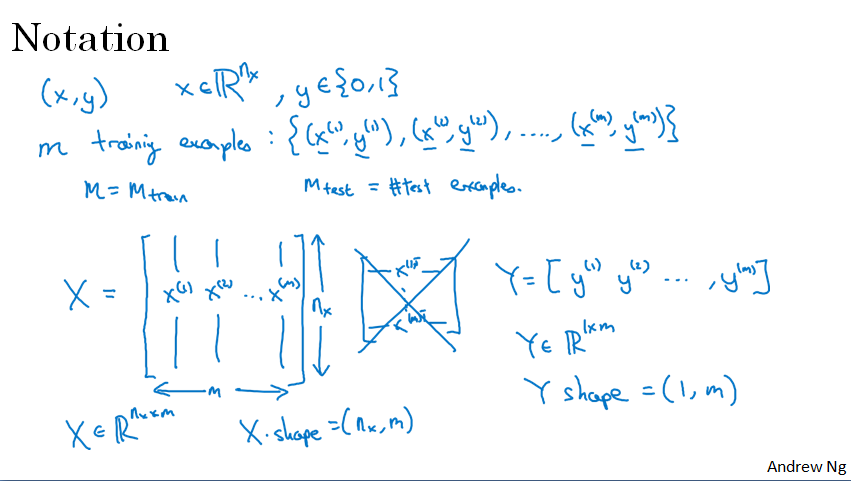 Notation
(x,y) x∈ℝ^{n_x}, y∈{0,1}
m training examples : {(x^{(1)}, y^{(1)}), (x^{(2)}, y^{(2)}), ...., (x^{(m)}, y^{(m)})}
M = M_{train} M_{test} = #test examples.
X = [x^{(1)} x^{(2)} ... x^{(m)}] n_x
m
x^{(1)T}
x^{(m)T}
Y = [y^{(1)} y^{(2)} ... , y^{(m)}]
Y∈ ℝ^{1×m}
Y shape = (1, m)
X∈ℝ^{n_x×m} X.shape = (n_x, m)
Andrew Ng